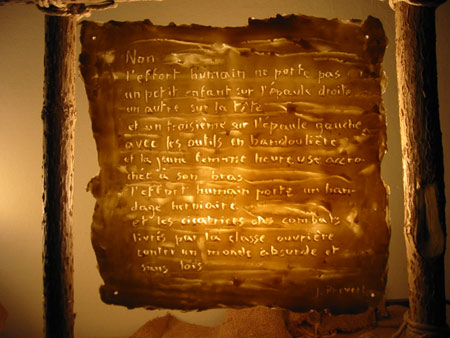 Non
l'effort humain ne porte pas
un petit enfant sur l'épaule droite
un autre sur la tête
et un troisième sur l'épaule gauche
avec les outils en bandoulière
et la jeune femme heureuse accro-
chée à son bras
l'effort humain porte un ban-
dage herniaire
et les cicatrices des combats
livrés par la classe ouvrière
contre un monde absurde et
sans lois
J. Prévert